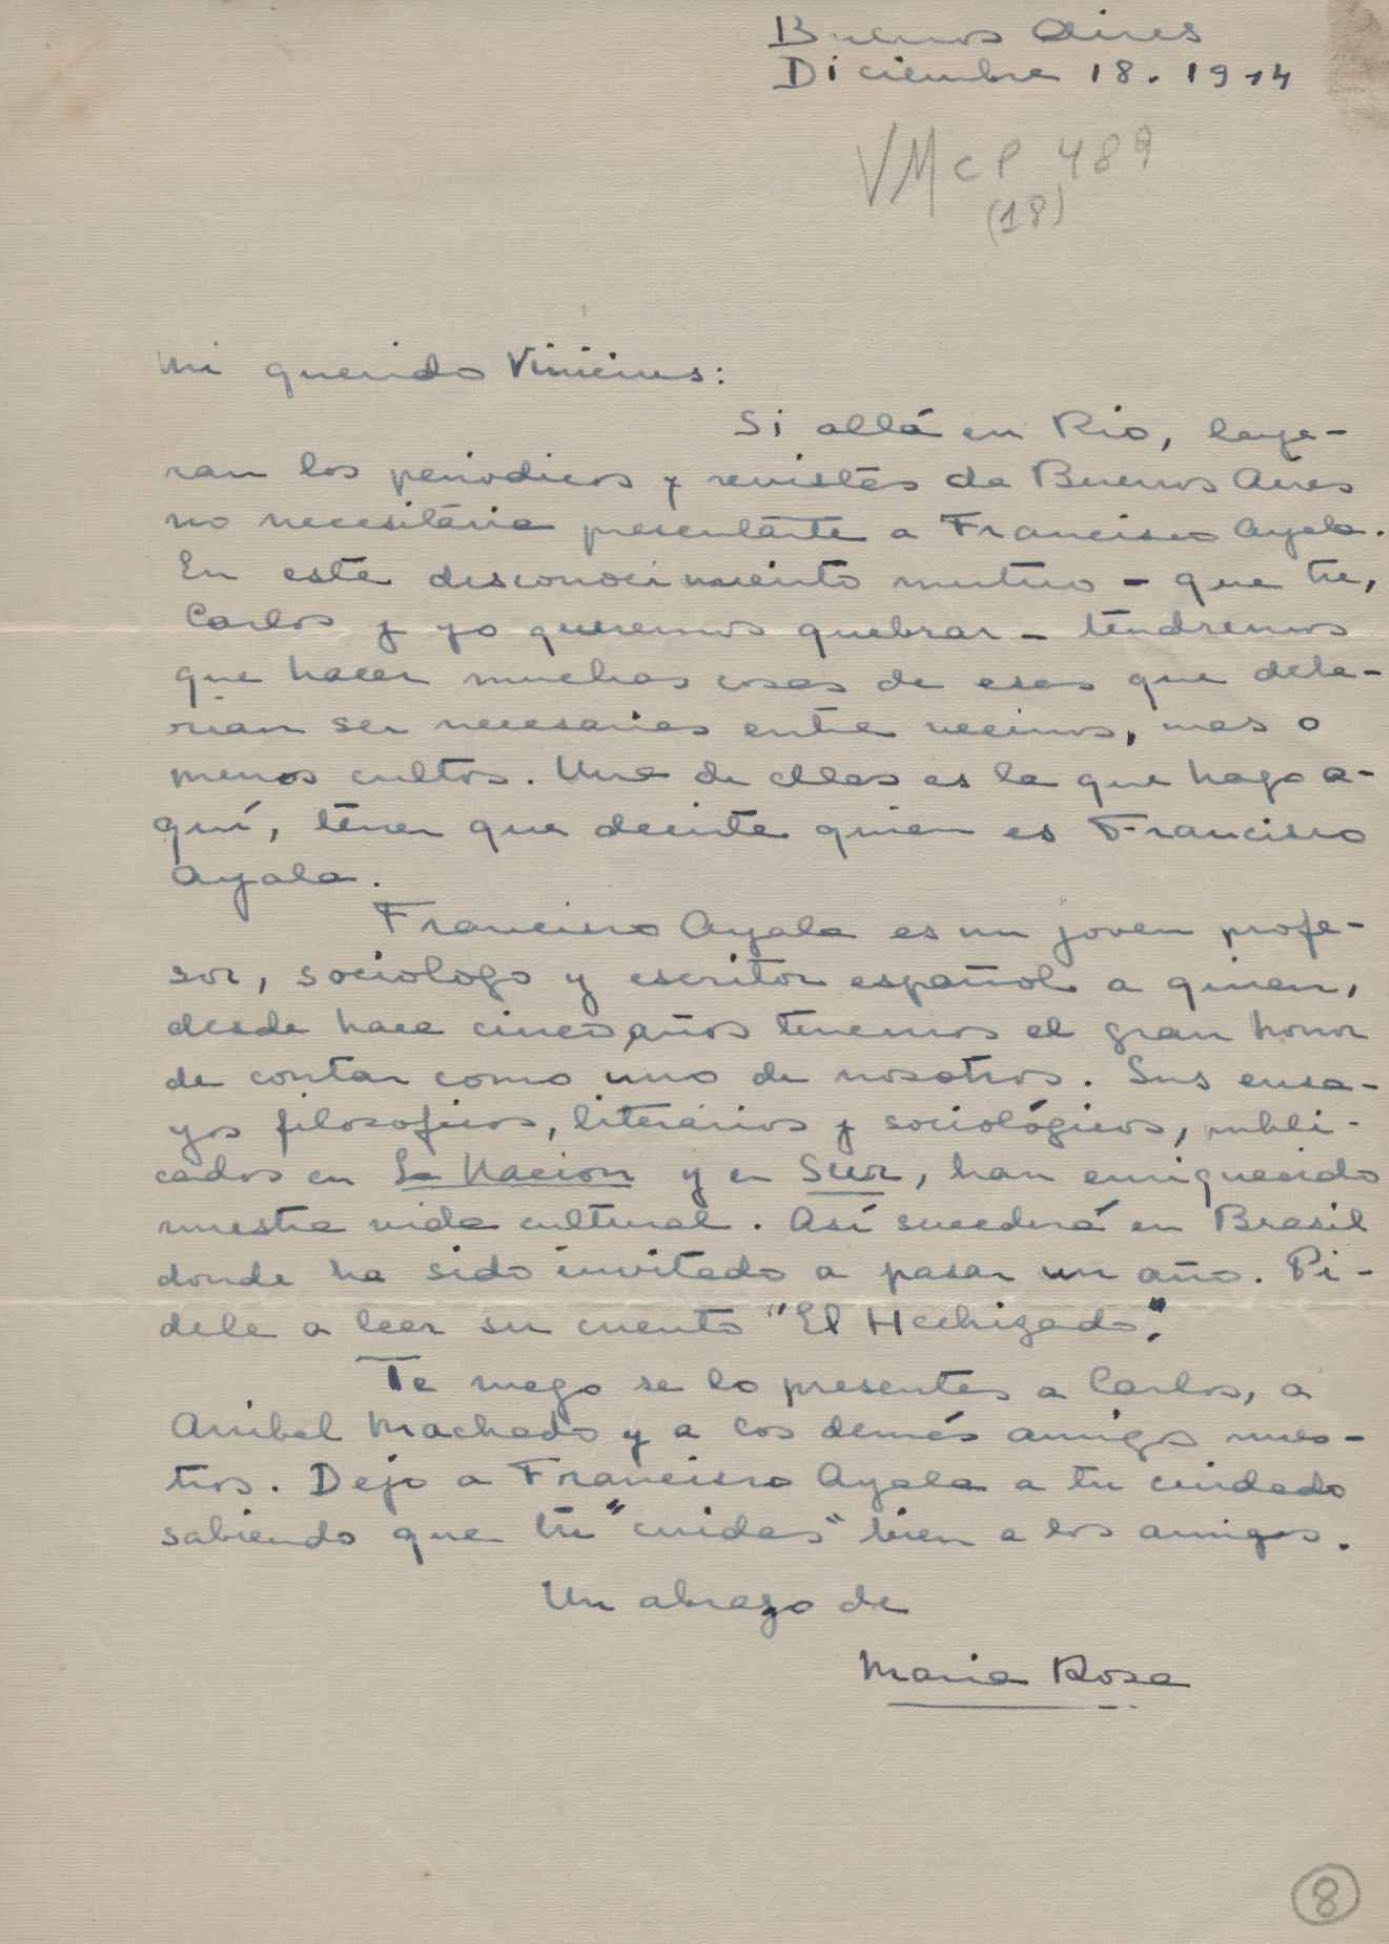 Buenos Aires
Diciembre 18. 1944
VMcP 489
(18)
Mi querido Vinicius:
Si allá en Rio, leye-
ran los periodicos y revistas de Buenos Aires
no necesitaria presentarte a Francisco Ayala.
En este desconocimiento mutuo - que tu,
Carlos y yo queremos quebrar - tendremos
que hacer muchas cosas de esas que debe-
rian ser necesarias entre vecinos, mas o
menos cultos. Una de ellas es la que hago a-
quí, tener que decirte quien es Francisco
Ayala.
Francisco Ayala es un joven profe-
sor, sociologo y escritor español a quien,
desde hace cinco años tenemos el gran honor
de contar como uno de nosotros. Sus ensa-
yos filosoficos, literarios y sociológicos, publi-
cados en La Nacion y en Sur, han enriquecido
nuestra vida cultural. Así sucederá en Brasil
donde ha sido invitado a pasar un año. Pi-
dele a leer su cuento "El Hechizado".
Te ruego se lo presentes a Carlos, a
Anibal Machado y a los demás amigos nues-
tros. Dejo a Francisco Ayala a tu cuidado
sabiendo que tu "cuidas" bien a los amigos.
Un abrazo de
Maria Rosa
8